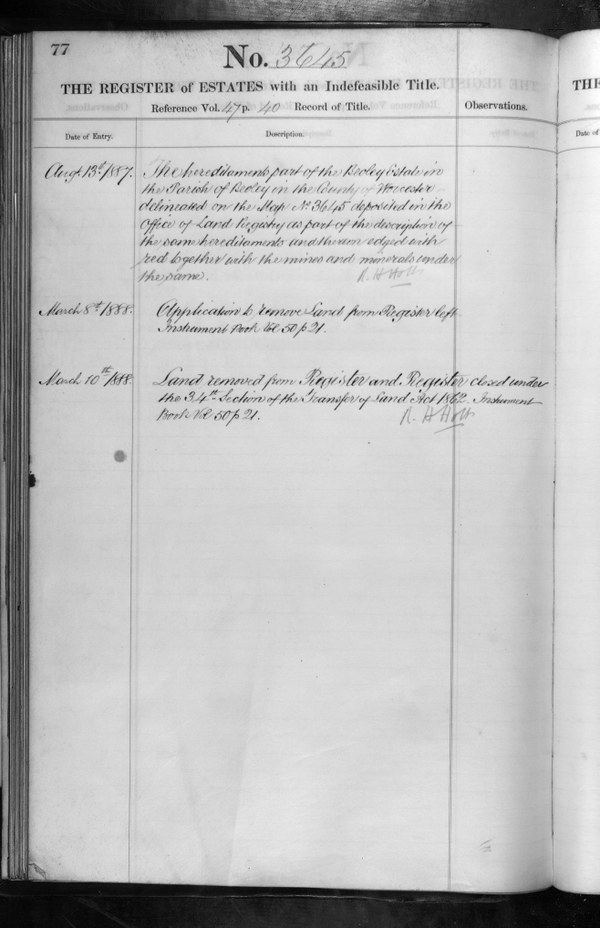 77
No. 3645
THE REGISTER of ESTATES with an Indefeasible Title.
Reference Vol. 47 p. 40 Record of Title.
Observations.
Date of Entry.
Description.
Augt. 13th 1887.
The hereditaments part of the Beoley Estate in
the Parish of Beoley in the County of Worcester
delineated on the Map No 3645 deposited in the
Office of Land Registry as part of the description of
the same hereditaments and thereon edged with
red together with the mines and minerals under
the same.
R. H Holt
March 8th 1888.
Application to remove Land from Register left
Instrument Book Vol 50 p 21.
March 10th 1888
Land removed from Register and Register closed under
the 34th Section of the Transfer of Land Act 1862. Instrument
Book Vol 50 p 21.
R. H Holt
THE
Date of